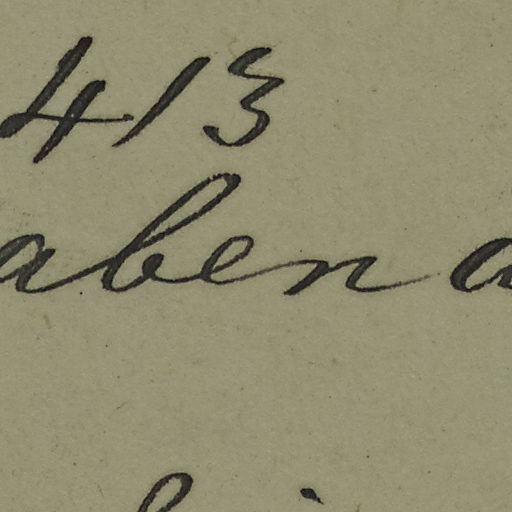 413
aben a